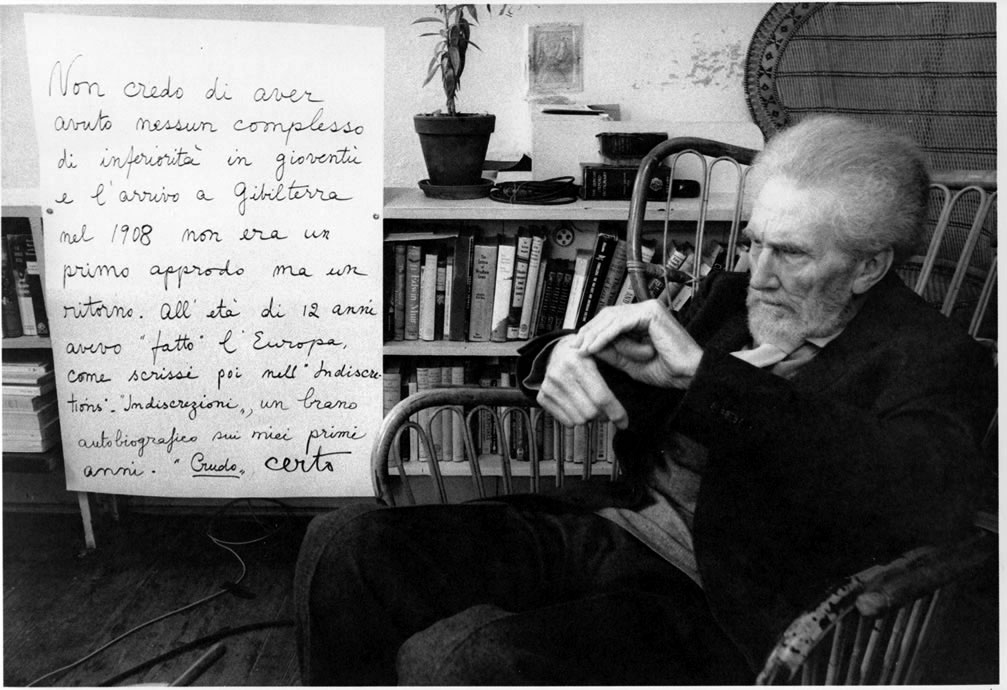 Non credo di aver
avuto nessun complesso
di inferiorità in gioventù
e l'arrivo a Gibilterra
nel 1908 non era un
primo approdo ma un
ritorno. All'età di 12 anni
avevo "fatto" l'Europa,
come scrissi poi nell' "Indiscre-
tions". "Indiscrezioni", un brano
autobiografico sui miei primi
anni. "Crudo", certo